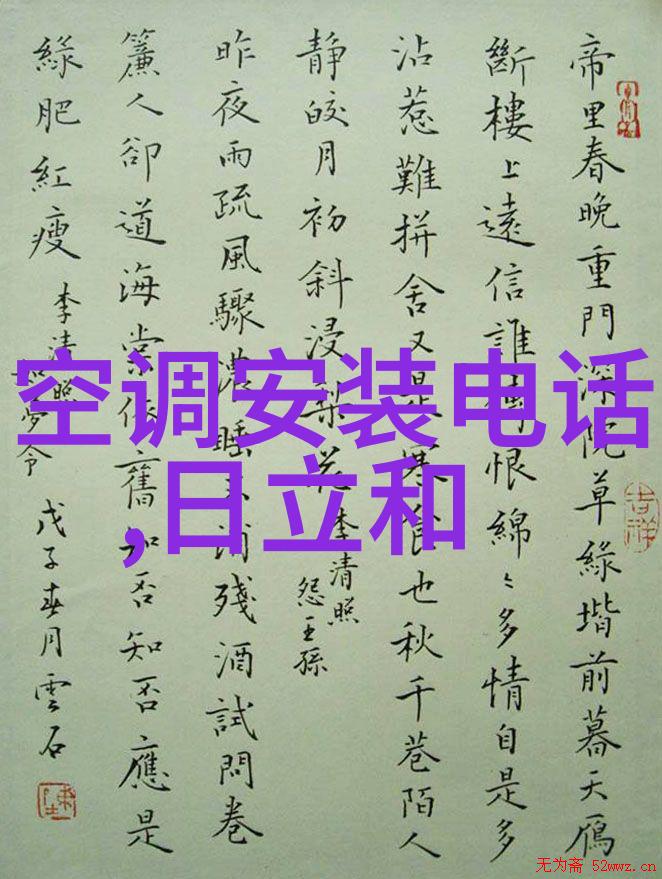 帝里春晚重門深院草綠堦前暮天鴈
斷樓上遠信誰傳恨綿〻多情自是多
沾惹難拼舍又是寒食也秋千巷陌人
靜皎月初斜浸梨花
李清照
怨王孫
昨夜雨疏風驟濃睡不消殘酒試問卷
簾人卻道海棠依舊知否知否應是
綠肥紅瘦
李清照
如夢令
戊子春月雲石
吉祥
空调安装电话
,日立和
无为斋 52wwz.cn